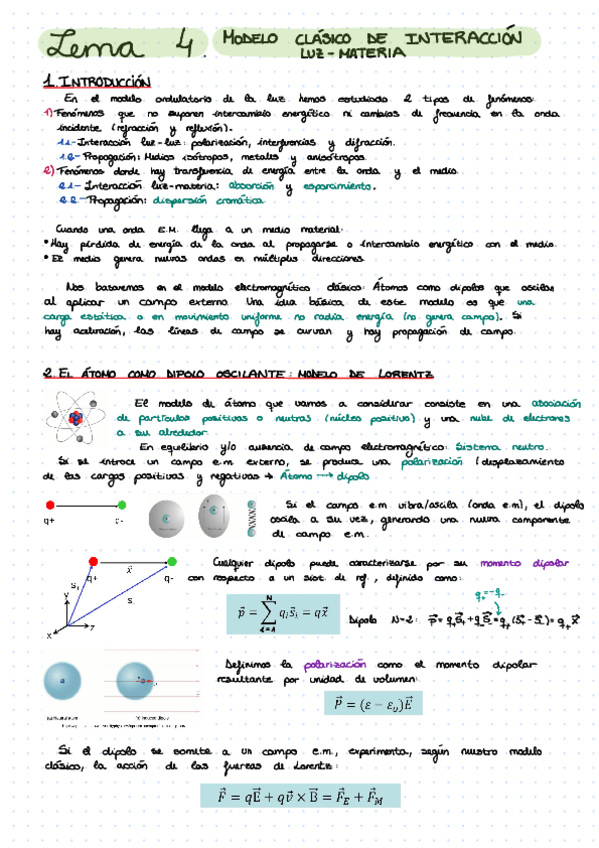 Tema 4. MODELO CLÁSICO DE INTERACCIÓN
LUZ-MATERIA
1. INTRODUCCIÓN
En el modelo ondulatorio de la luz hemos estudiado 2 tipos de fenómenos:
1) Fenómenos que no suponen intercambio energético ni cambios de frecuencia en la onda
incidente (refracción y reflexión).
1.1- Interacción luz-luz: polarización, interferencias y difracción.
1.2- Propagación: Medios isótropos, metales y anisótropos.
2) Fenómenos donde hay transferencia de energía entre la onda y el medio.
2.1- Interacción luz-materia: absorción y esparcimiento.
2.2- Propagación: dispersión cromática
Cuando una onda E.M. llega a un medio material:
• Hay pérdida de energía de la onda al propagarse o intercambio energético con el medio.
• El medio genera nuevas ondas en múltiples direcciones.
Nos basaremos en el modelo electromagnético clásico: Átomos como dipolos que oscilan
al aplicar un campo externo. Una idea básica de este modelo es que una
carga estática o en movimiento uniforme no radia energía (no genera campo). Si
hay aceleración, las líneas de campo se curvan y hay propagación de campo.
2. EL ÁTOMO COMO DIPOLO OSCILANTE: MODELO DE LORENTZ
El modelo de átomo que vamos a considerar consiste en una asociación
de partículas positivas o neutras (núcleo positivo) y una nube de electrones
a su alrededor.
En equilibrio y/o ausencia de campo electromagnético: Sistema neutro.
Si se introce un campo e.m externo, se produce una polarización (desplazamiento
de las cargas positivas y negativas → Átomo ---> dipolo
q+ q-
Si el campo e.m vibra/oscila (onda e.m), el dipolo
oscila a su vez, generando una nueva componente
de campo e.m.
Cualquier dipolo puede caracterizarse por su momento dipolar
con respecto a un sist. de ref., definido como:
q+ x⃗ q-
S₊ S₋
X Y Z
p⃗ = ∑ᵢ₌₁ᴺ qᵢs⃗ᵢ = qx⃗
q₊=-q₋
Dipolo N=2: p⃗ = q₊S⃗₊+q₋S⃗₋ = q₊(S⃗₊-S⃗₋) = q₊x⃗
Definimos la polarización como el momento dipolar
resultante por unidad de volumen:
P⃗ = (ε − ε₀)E⃗
(b) Induced dipole
Si el dipolo se somete a un campo e.m., experimenta, según nuestro modelo
clásico, la acción de las fuerzas de Lorentz:
F⃗ = qE⃗ + qv⃗ × B⃗ = F⃗_E + F⃗_M